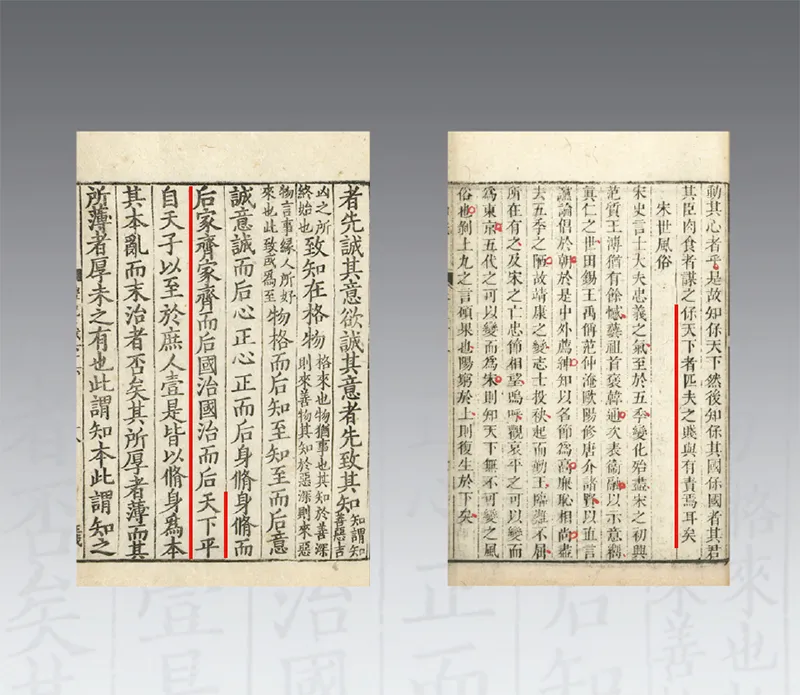 者先誠其意欲誠其意者先致其知知謂知善惡吉
凶之所終始也致知在格物格來也物猶事也其知於善深則來善物其知於惡深則來惡
物言事緣人所好來也此致或為至物格而后知至知至而后意
誠意誠而后心正心正而后身脩身脩而
后家齊家齊而后國治國治而后天下平
自天子以至於庶人壹是皆以脩身為本
其本亂而末治者否矣其所厚者薄而其
所薄者厚未之有也此謂知本此謂知之
動其心者乎是故知保天下然後知保其國保國者其君
其臣肉食者謀之保天下者匹夫之賤與有責焉耳矣
宋世風俗
宋史言士大夫忠義之氣至於五季變化殆盡宋之初興
范質王溥猶有餘憾藝祖首褒韓通次表衛融以示意嚮
真仁之世田錫王禹偁范仲淹歐陽修唐介諸賢以直言
讜論倡於朝於是中外薦紳知以名節為高廉恥相尚盡
去五季之陋故靖康之變志士投袂起而勤王臨難不屈
所在有之及宋之亡忠節相望嗚呼觀哀平之可以變而
為東京五代之可以變而為宋則知天下無不可變之風
俗也剝上九之言碩果也陽窮於上則復生於下矣